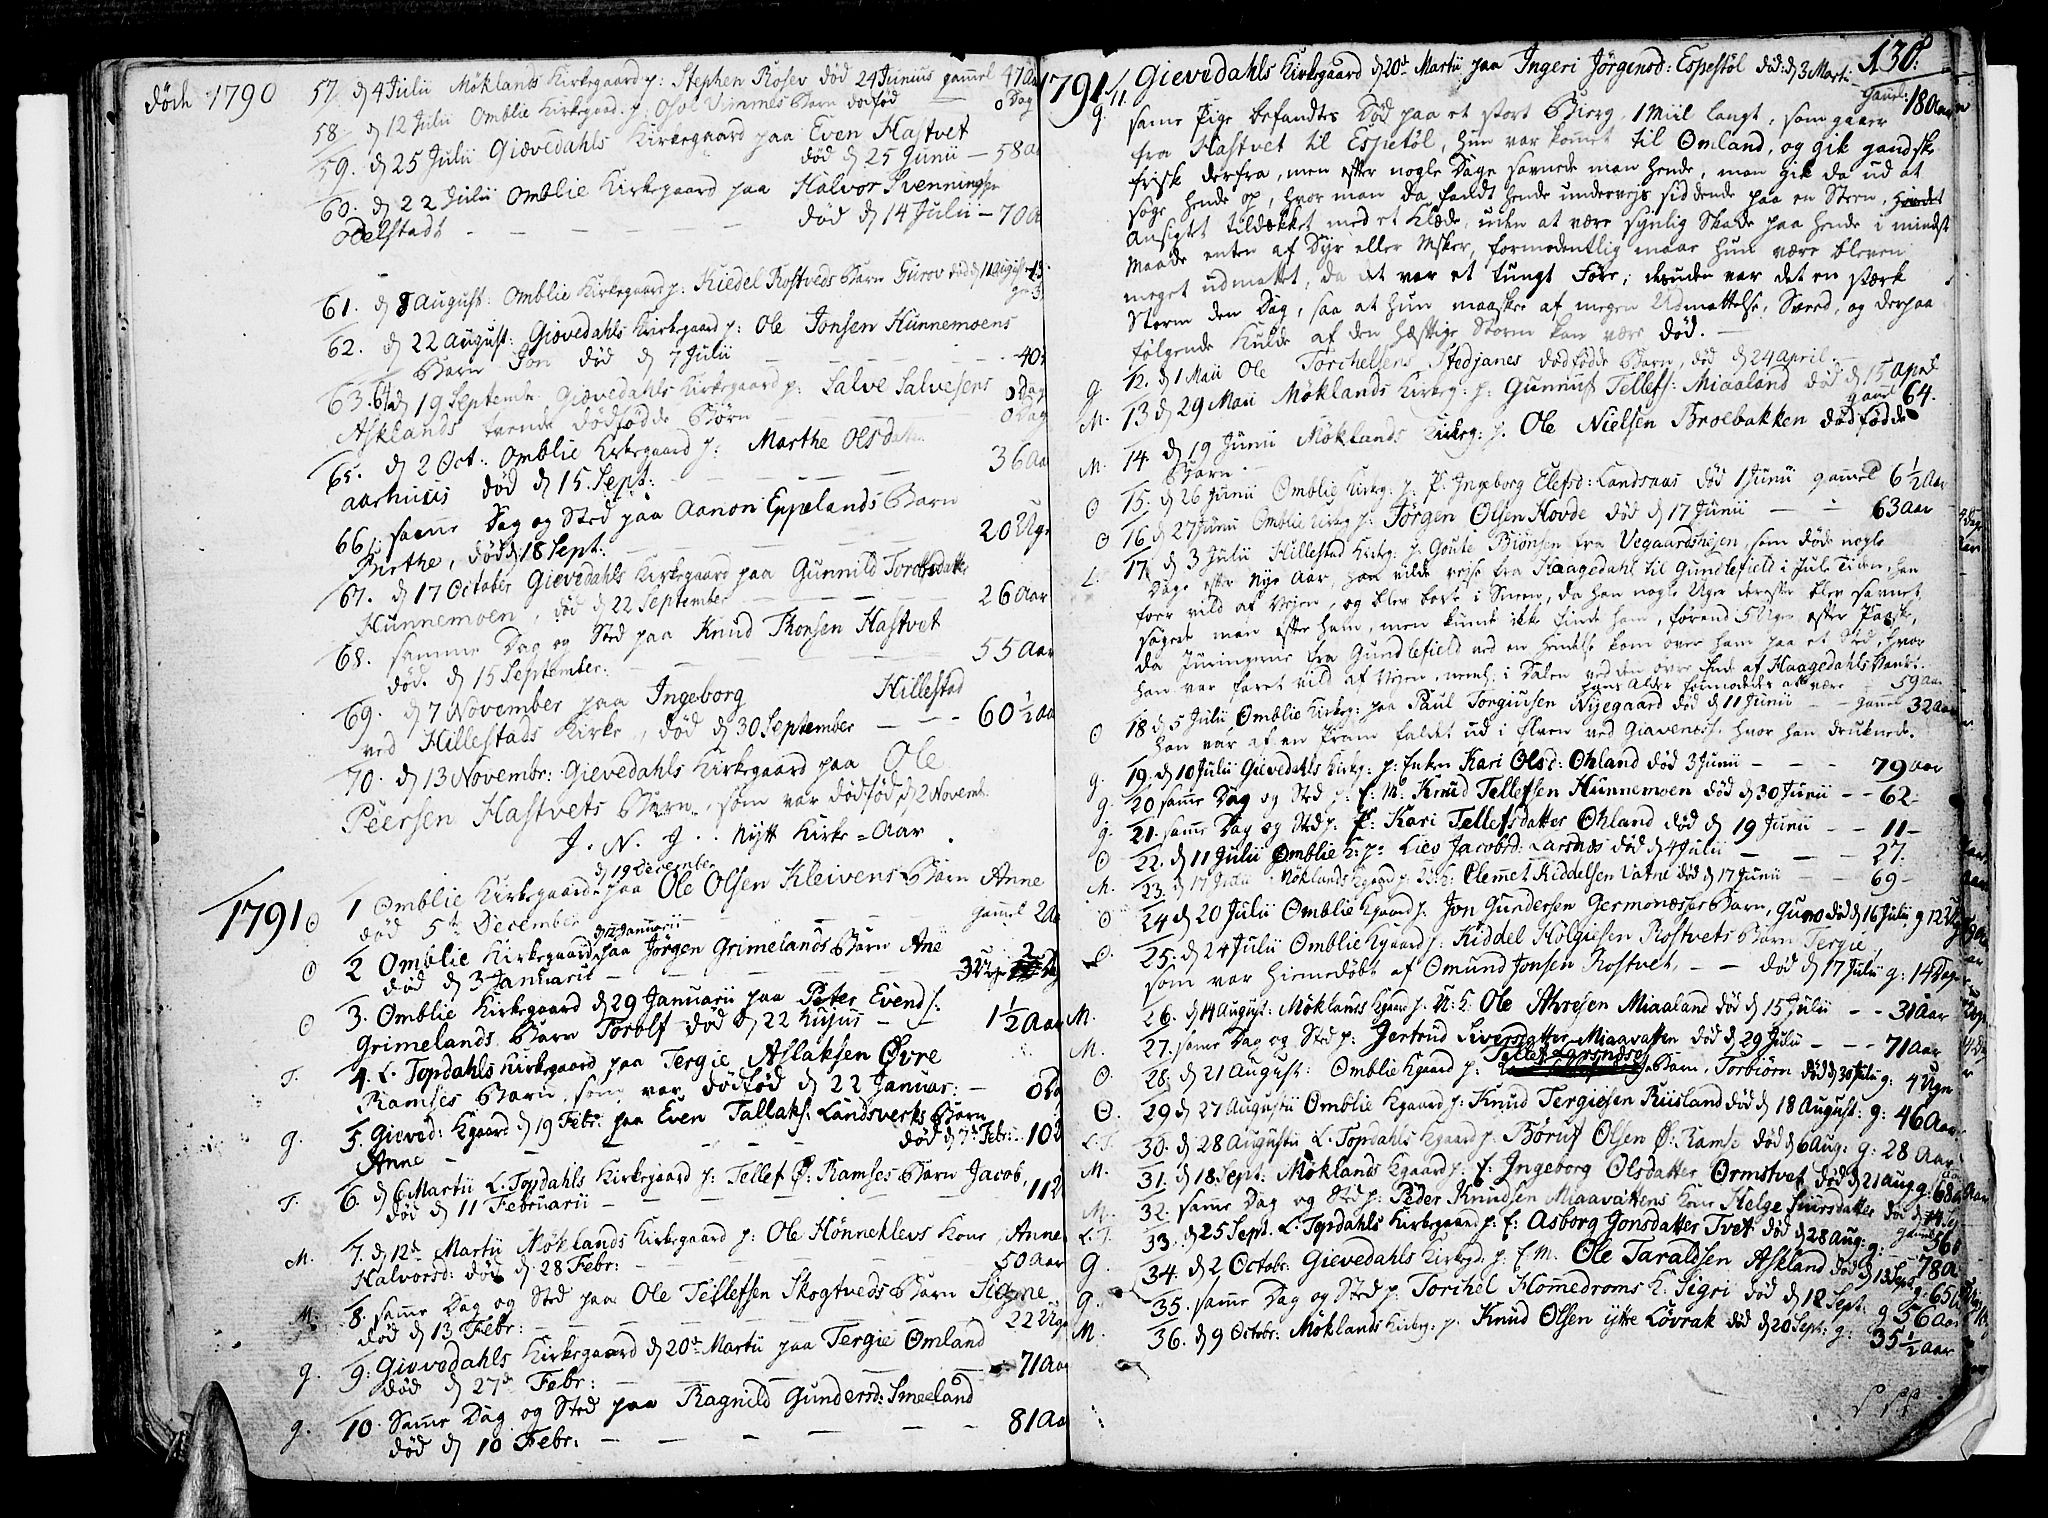 døde 1790
57. d 4 Julii Møklands Kirkegaard p: Stephen Rosev død 24 Junius gamel 47 Aar
58. d 12 Julii Omblie Kirkegaard p: Vimmes Barn dødfød — 0 Dag
59. d 25 Julii Giævedahls Kirkegaard paa Even Hastvet
død d 25 Junii — 58 a
60. d 22 Julii Omblie Kirkegaard paa Halvor Svenningsen
Odelstadt — død d 14 Julii — 70 a
61. d 8 August: Omblie Kirkegaard p: Kiedel Rostveds Barn Gurov død d 11 August
62. d 22 August: Gievedahls Kirkegaard p: Ole Jonsen Hunnemoens
Barn Jon død d 7 Julii — 40
63. 64 d 19 Septembr. Giævedahls Kirkegaard p: Salve Salvesens 0 Dag
Asklands tvende dødfødde Børn 0 Dag
65. d 2 Oct: Omblie Kirkegaard p: Marthe Olsdatter
Aarhuus død d 15. Sept: — 36 Aar
66. samme Dag og Sted paa Aanon Eppelands Barn
Birthe, død d 18 Sept: — 20 Uger
67. d 17 October Gievedahls Kirkegaard paa Gunnild Tordsdatter
Hunnemoen, død d 22 September — 26 Aar
68. samme Dag og Sted paa Knud Thorsen Hastvet
død. d 15 September: — 55 Aar
69. d 7 November paa Ingeborg Hillestad
ved Hillestads Kirke, død d 30 September — 60 1/2 aar
70. d 13 Novembr: Gievedahls Kirkegaard paa Ole
Peersen Hastvets Barn som var dødfød d 2 Novemb.
J. N. J. Nytt Kirke-Aar
d 19 December
1791 O 1 Omblie Kirkegaard paa Ole Olsen Kleivens Barn Anne
død 5te December — gammel 2 Aa
O 2 Omblie Kirkegaard paa Jørgen Grimelands Barn Ane
død d 3 Januarii — 3 Uger 2 Dag
O 3. Omblie Kirkegaard d 29 Januarii paa Peter Evends:
Grimelands Barn Torolf død d 22 hujus — 1 1/2 Aar
T. 4. L. Topdahls Kirkegaard paa Tergie Aslaksen Øvre
Ramses Barn, som var dødfød d 22 Januar: — 0 Da
g. 5. Gieved: Kgaard d 19 Febr: paa Even Tallaks: Landsverks Barn
Anne — død d 7 Febr: 10 D
T. 6. d 6 Martii L. Topdahls Kirkegaard p: Tellef Ø: Ramses Barn Jacob,
død d 11 Februarii — 11 D
M. 7. d 12te Martii Møklands Kirkegaard p: Ole Hønneklevs Kone Anne
Halvorsd: død d 28 Febr: — 50 Aar
M. 8. samme Dag og Sted paa Ole Tellefsen Skogtveds Barn Signe
død d 13 Febr: — 22 Uger
g. 9. Gievedahls Kirkegaard d 20te Martii paa Tergie Omland
død d 27de Febr: — 71 Aar
g. 10. Samme Dag og Sted paa Ragnild Gundersd: Smeeland
død d 10 Febr: — 81 Aa
130.
1791 g. 11. Gievedahls Kirkegaard d 20te Martii paa Ingeri Jörgensd: Espestøl død: d 3 Marti:
gamel: 18 Aar
samme Pige befandtes Død paa et stort Bierg, 1 Miil langt, som gaaer
fra Hastvet til Espetøl, hun var kommet til Omland, og gik gandske
frisk derfra, men efter nogle Dage savnede man hende, man gik da ud at
søge hende op, hvor man da fandt hende underveys siddende paa en Steen,
Ansigtet tildækket med et Klæde, uden at være synlig Skade paa hende i mindste
Maade enten af Dyr eller Msker, formodentlig maae hun være bleven
meget udmattet, da det var et tungt Føre, desuden var det en stærk
Storm den Dag, saa at hun maaskee af megen Udmattelse, Sveed, og derpaa
følgende Kulde af den hæftige Storm kan være død.
g 12. d 1 Maii Ole Torchelsens Stedjanes dødfødde Barn, død d 24 April.
M. 13 d 29 Maii Møklands Kirkg: p: Gunnuf Tellefs: Miaaland død d 15 April
gamel 64.
M. 14. d 19 Junii Møklands Kirkg: p. Ole Nielsen Broebakken dødfødde
Barn.
O 15. d 26 Junii Omblie Kirkg: p. P. Ingeborg Elefsd: Landsaas død 1 Junii gamel 6 1/2 Aar
O 16 d 27 Junii Omblie Kirkg p: Jørgen Olsen Hovde død d 17 Junii — 63 aar
L. 17. d 3 Julii Hillestad Kirkg: p. Goute Biønsen fra Vegaardsheien som døde nogle
Dage efter Nye Aar, han vilde rejse fra Haagedahl til Gundlefield i Jule Tiden, han
foer vild af Vejen, og blev borte i Sneen, da han nogle Uger derefter blev savnet,
søgede man efter ham, men kunde ikke finde ham, førend 5 Uger efter Paaske,
da fra Gundlefield ved en Hendelse kom over ham paa et Sted, hvor
han var faret vild af Vejen, neml: i Dalen ved den øvre Ende af Haagedahls Vand:
hans Alder formodedes at være 59 aar
O 18 d 5 Julii Omblie Kirkg: paa Paul Torgiusen Nigegaard død d 11 Junii — gamel 32 Aar
han var af en Pram faldet ud i Elven ved Giavenæss. hvor han druknede.
g. 19. d 10 Julii Gievedahls Kirkg: p: Enken Kari Olsd: Ohland død 3 Junii — 79 aar
g. 20 samme Dag og Sted p: E. M: Knud Tellefsen Hunnemoen død d 30 Junii — 62 —
g. 21. samme Dag og Sted p: P: Kari Tellefsdatter Ohland død d 19 Junii — 11 —
O 22. d 11 Julii Omblie K: p: Liev Jacobsd: Larsnæs død d 4 Julii — 27.
M. 23. d 17 Julii Møklands Kgaard p. Clemet Kiddelsen Vatne død d 17 Junii — 69 —
O 24 d 20 Julii Omblie Kgaard p. Jon Gundersen Germonæsses Barn, Guno død d 16 Julii g 12 Uger
O. 25. d 24 Julii Omblie Kgaard p: Kiddel Holgiesen Rostvets Barn Tergie,
som var hiemedøbt af Omund Jonsen Rostvet, — død d 17 Julii g: 14 Dage
M. 26. d 14 August: Møklands Kgaard p. U: K. Ole Miaaland død d 15 Julii — 31 Aar
M. 27. samme Dag og Sted p: Jertrud Siversdatter Miaavatten død d 29 Julii — 71 Aar
O. 28. d 21 August: Omblie Kgaard p: Tellef Larsnæsses Barn, Torbiørn død d 30 Julii g: 4 Uger
O. 29 d 27 Augustii Omblie Kgaard p: Knud Tergiesen Riisland død d 18 August: g: 46 Aar
L.T. 30. d 28 Augustii L. Topdahls Kgaard p. Børuf Olsen Ø: Ramse død d 6 Aug: g: 28 Aar
M. 31. d 18 Sept: Møklands Kgaard p: E: Ingeborg Olsdatter Ormstvet død d 21 Aug g: 68
M. 32. samme Dag og Sted p: Peder Knudsen Miaavattens Kone Helge Siursdatter død d 14 Sep
L.T. 33. d 25 Sept. L. Topdahls Kirkegaard p: E: Asborg Jonsdatter Tvet død d 28 Aug: g:
G. 34. d 2 Octobr: Gievedahls Kirkgd. p. E. M. Ole Taraldsen Askland død d 13 Sept 78 a
G. 35. samme Dag og Sted p: Torchel Hommedroms K. Sigri død d 12 Sept: g 56 aar
M. 36. d 9 Octobr: Møklands Kirkg: p. Knud Olsen ytte Lövrak død d 20 Sept: g: 35 1/2 Aar